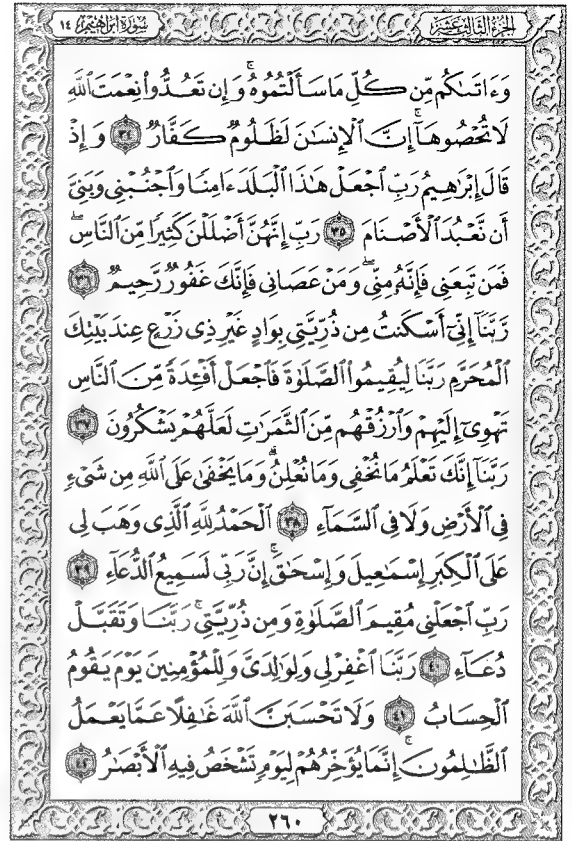 سُورَةُ إِبْرَاهِيم ١٤
الجُزْءُ الثَّالِثَ عَشَرَ
وَءَاتَىٰكُم مِّن كُلِّ مَا سَأَلْتُمُوهُ ۚ وَإِن تَعُدُّوا۟ نِعْمَتَ ٱللَّهِ
لَا تُحْصُوهَآ ۗ إِنَّ ٱلْإِنسَٰنَ لَظَلُومٌ كَفَّارٌ ٣٤ وَإِذْ
قَالَ إِبْرَٰهِيمُ رَبِّ ٱجْعَلْ هَٰذَا ٱلْبَلَدَ ءَامِنًا وَٱجْنُبْنِى وَبَنِىَّ
أَن نَّعْبُدَ ٱلْأَصْنَامَ ٣٥ رَبِّ إِنَّهُنَّ أَضْلَلْنَ كَثِيرًا مِّنَ ٱلنَّاسِ ۖ
فَمَن تَبِعَنِى فَإِنَّهُۥ مِنِّى ۖ وَمَنْ عَصَانِى فَإِنَّكَ غَفُورٌ رَّحِيمٌ ٣٦
رَّبَّنَآ إِنِّىٓ أَسْكَنتُ مِن ذُرِّيَّتِى بِوَادٍ غَيْرِ ذِى زَرْعٍ عِندَ بَيْتِكَ
ٱلْمُحَرَّمِ رَبَّنَا لِيُقِيمُوا۟ ٱلصَّلَوٰةَ فَٱجْعَلْ أَفْـِٔدَةً مِّنَ ٱلنَّاسِ
تَهْوِىٓ إِلَيْهِمْ وَٱرْزُقْهُم مِّنَ ٱلثَّمَرَٰتِ لَعَلَّهُمْ يَشْكُرُونَ ٣٧
رَبَّنَآ إِنَّكَ تَعْلَمُ مَا نُخْفِى وَمَا نُعْلِنُ ۗ وَمَا يَخْفَىٰ عَلَى ٱللَّهِ مِن شَىْءٍ
فِى ٱلْأَرْضِ وَلَا فِى ٱلسَّمَآءِ ٣٨ ٱلْحَمْدُ لِلَّهِ ٱلَّذِى وَهَبَ لِى
عَلَى ٱلْكِبَرِ إِسْمَٰعِيلَ وَإِسْحَٰقَ ۚ إِنَّ رَبِّى لَسَمِيعُ ٱلدُّعَآءِ ٣٩
رَبِّ ٱجْعَلْنِى مُقِيمَ ٱلصَّلَوٰةِ وَمِن ذُرِّيَّتِى ۚ رَبَّنَا وَتَقَبَّلْ
دُعَآءِ ٤٠ رَبَّنَا ٱغْفِرْ لِى وَلِوَٰلِدَىَّ وَلِلْمُؤْمِنِينَ يَوْمَ يَقُومُ
ٱلْحِسَابُ ٤١ وَلَا تَحْسَبَنَّ ٱللَّهَ غَٰفِلًا عَمَّا يَعْمَلُ
ٱلظَّٰلِمُونَ ۚ إِنَّمَا يُؤَخِّرُهُمْ لِيَوْمٍ تَشْخَصُ فِيهِ ٱلْأَبْصَٰرُ ٤٢
٢٦٠